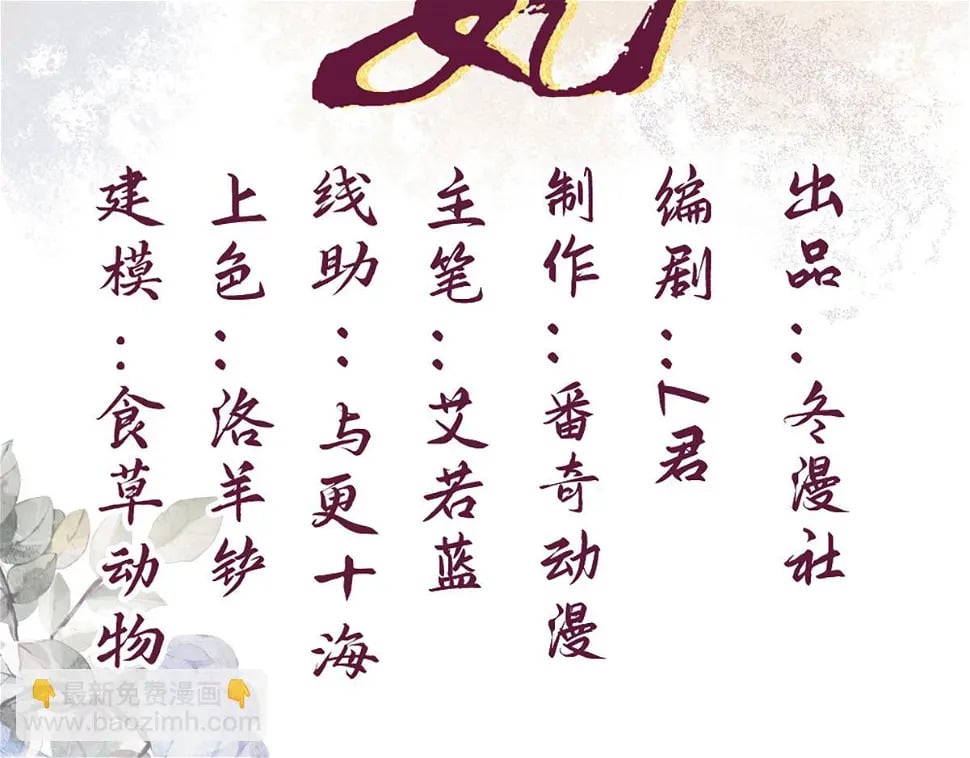 出品：冬漫社
编剧：7君
制作：番奇动漫
主笔：艾若蓝
线助：与更十海
上色：洛羊铲
建模：食草动物
👇最新免费漫画👇
www.baozimh.com